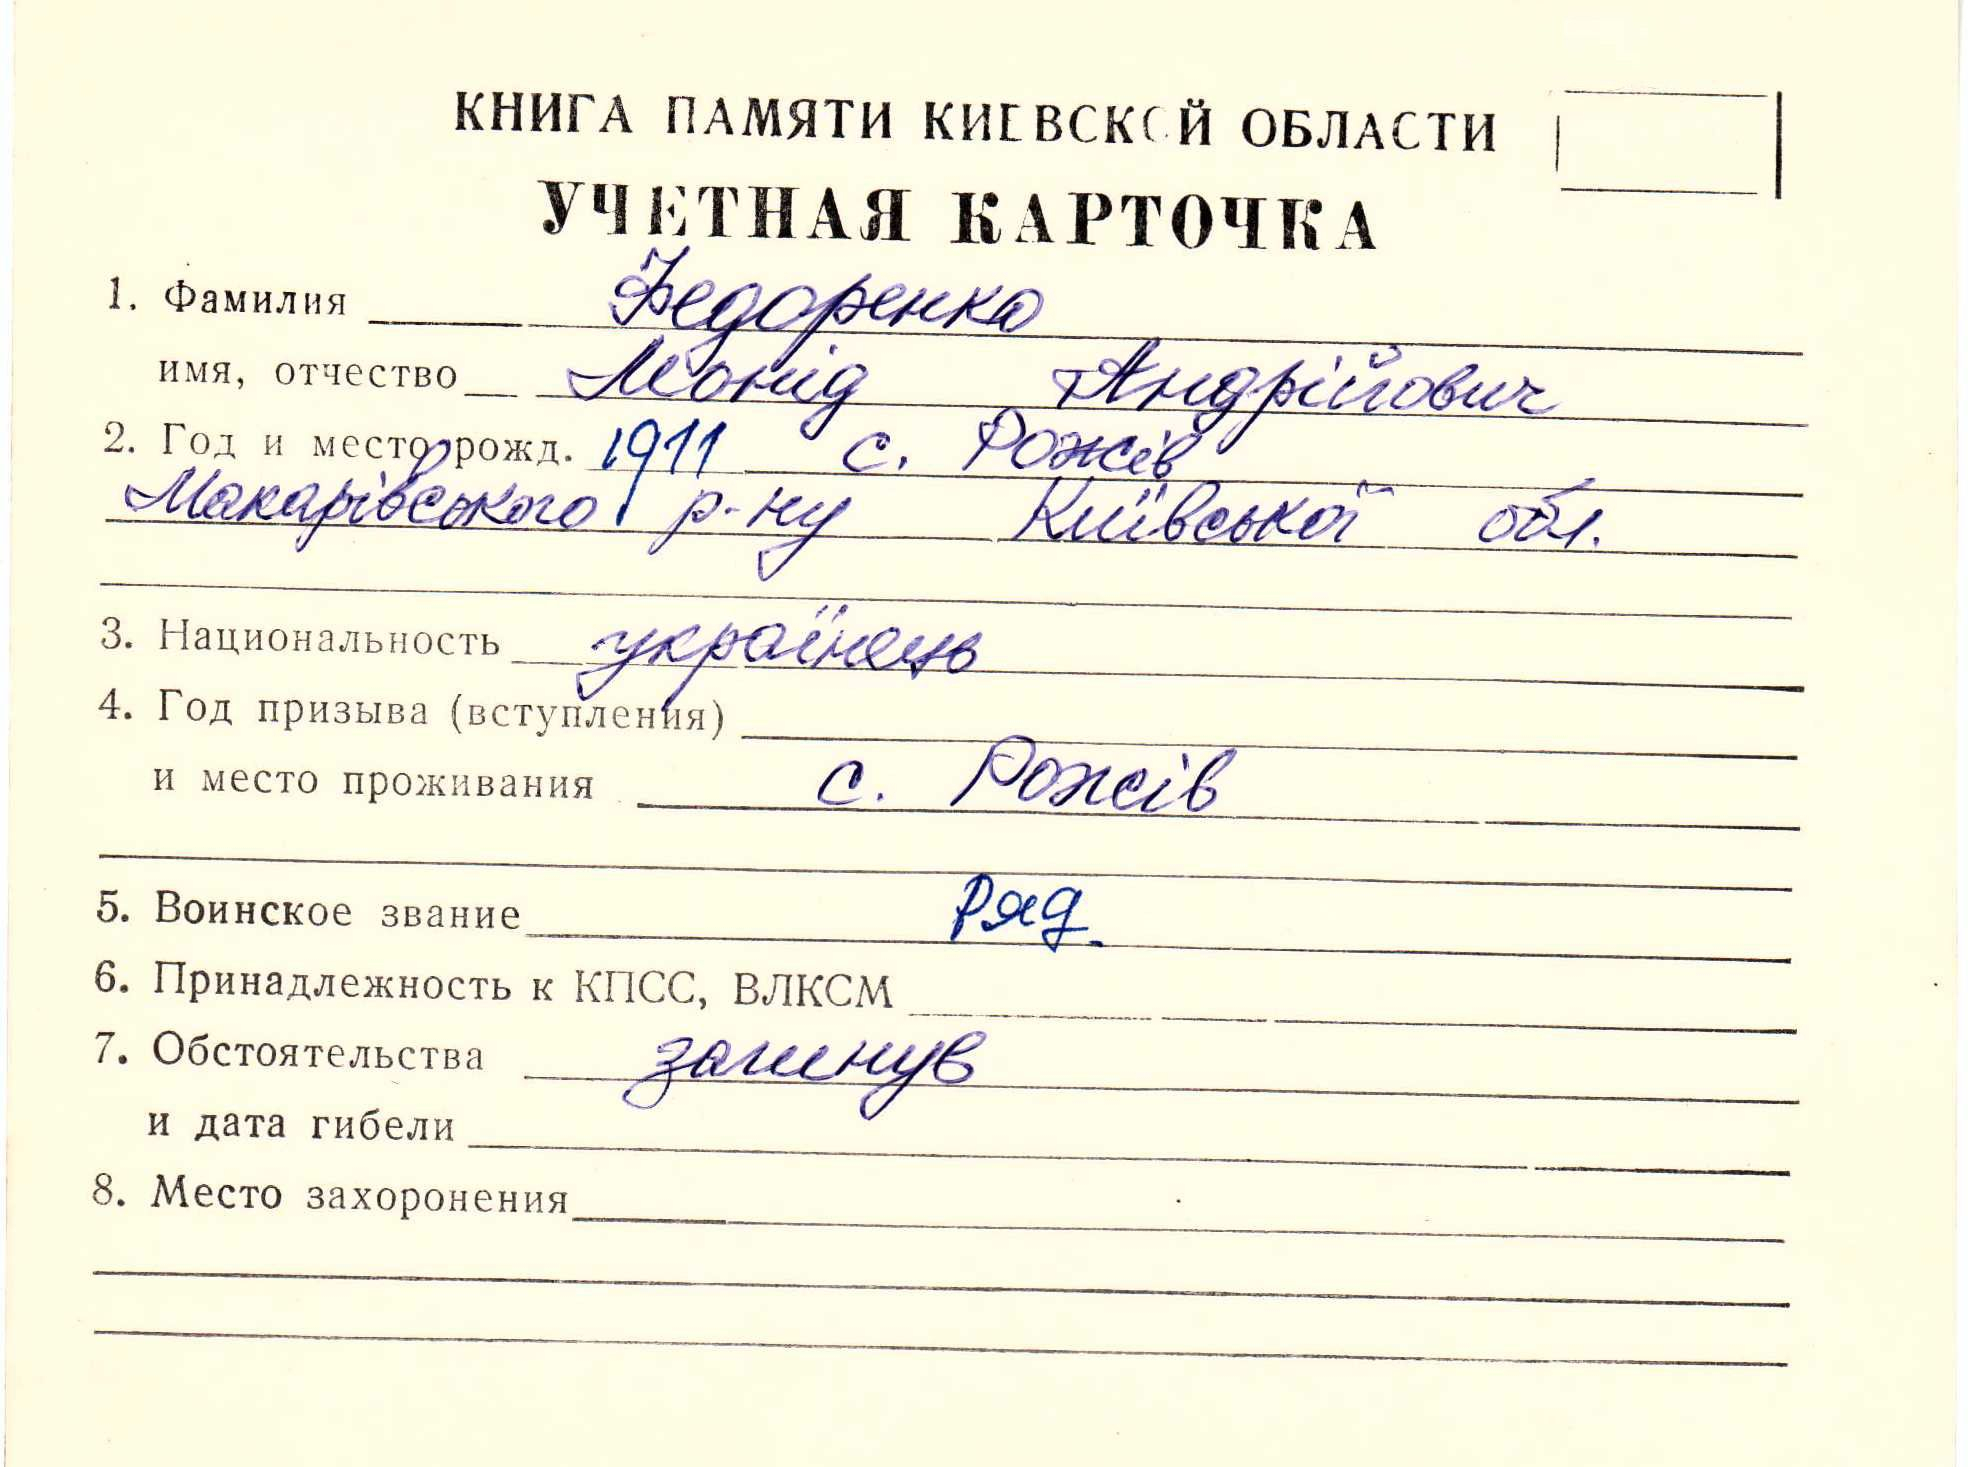 КНИГА ПАМЯТИ КИЕВСКОЙ ОБЛАСТИ
УЧЕТНАЯ КАРТОЧКА
1. Фамилия Федоренко
имя, отчество Леонід Андрійович
2. Год и место рожд. 1911 с. Рожів
Макарівського р-ну Київської обл.
3. Национальность українець
4. Год призыва (вступления)
и место проживания с. Рожів
5. Воинское звание ряд.
6. Принадлежность к КПСС, ВЛКСМ
7. Обстоятельства загинув
и дата гибели
8. Место захоронения